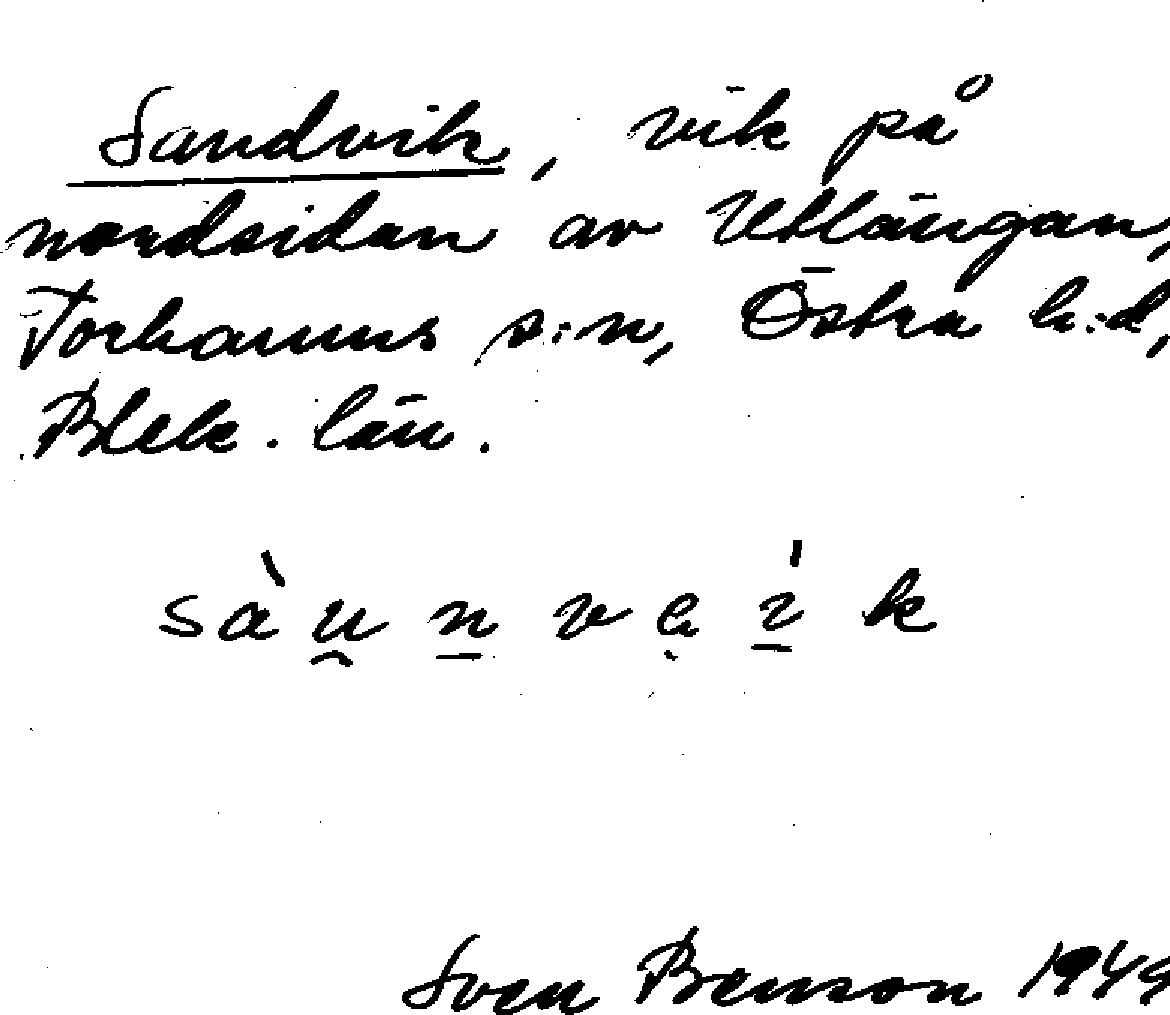 Sandvik, vik på
nordsidan av Utlängan,
Torhamns s:n, Östra h:d,
Blek. län.
sàu̯n̲ve̤i̲̍k
Sven Benson 1949